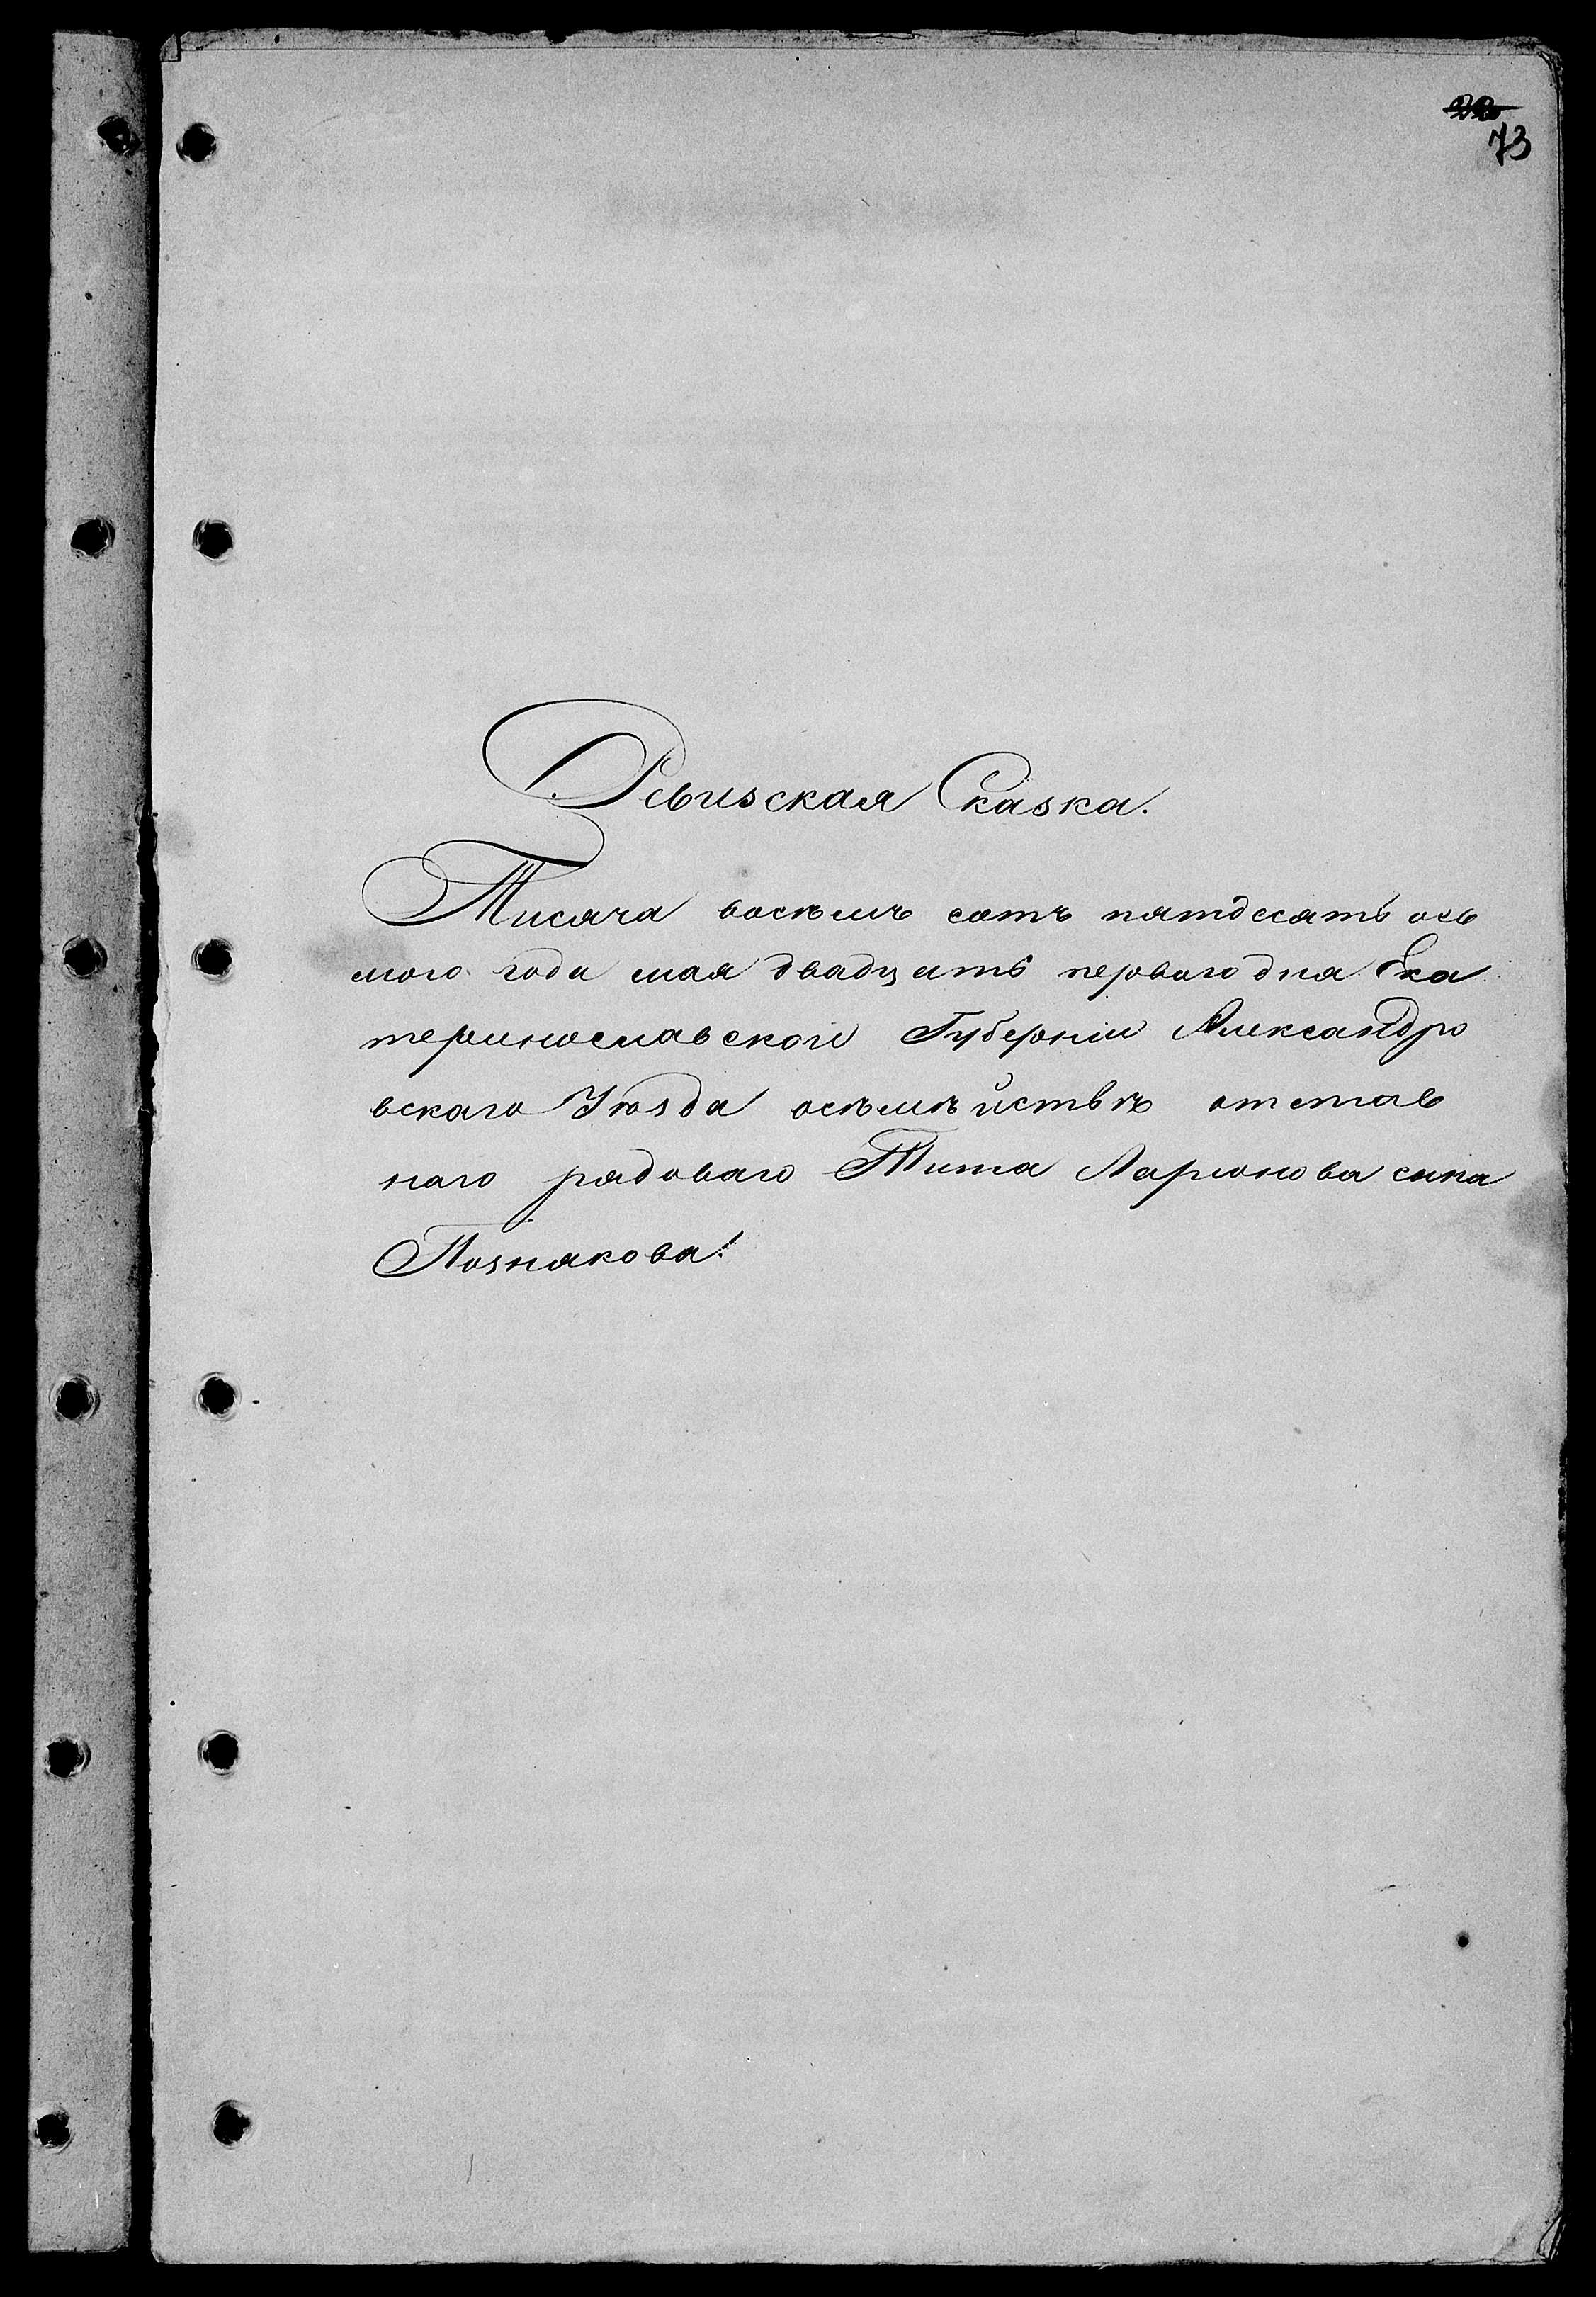 73
Ревизская Сказка.
Тисяча восѣмъ сотъ пятдесятъ ось
мого года мая двадцать перваго дня Ека
теринославской Губерніи Александро
вскаго Уѣзда осѣмѣйствѣ отстав
наго рядоваго Тита Ларионова сина
Познякова.